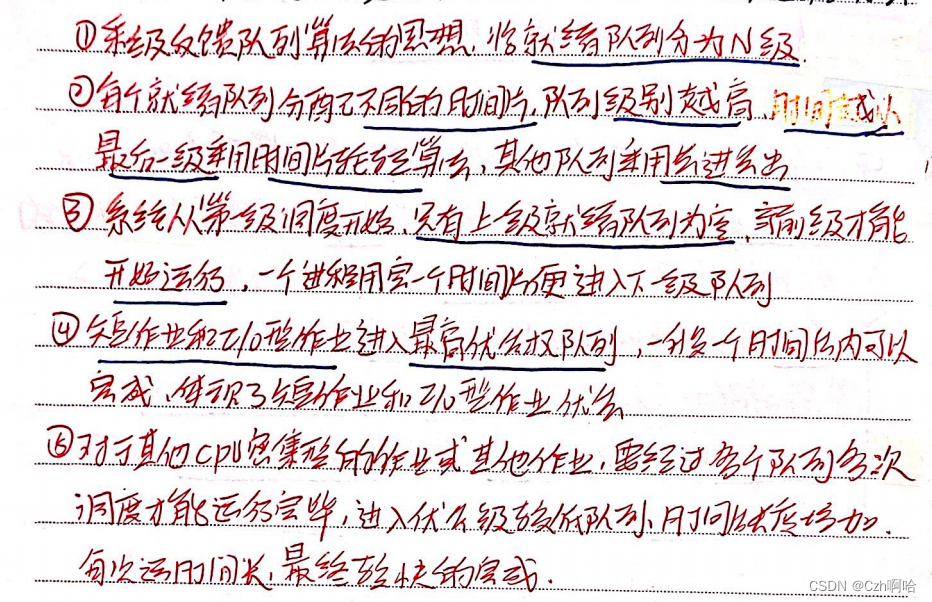 ①多级反馈队列算法的思想,将就绪队列分为N级.
②每个就绪队列分配了不同的时间片,队列级别越高,时间越小
最后一级采用时间片轮转算法,其他队列采用先进先出
③系统从第一级调度开始,只有上一级就绪队列为空,当前级才能
开始运行,一个进程用完一个时间片便进入下一级队列
④短作业和I/O型作业进入最高优先权队列,一般一个时间片内可以
完成,体现了短作业和I/O型作业优先
⑤对于其他CPU密集型的作业或其他作业,需经过各个队列多次
调度才能运行完毕,进入优先级较低队列,时间片长度增加.
每次运时间长,最终较快的完成.
CSDN @Czh啊哈